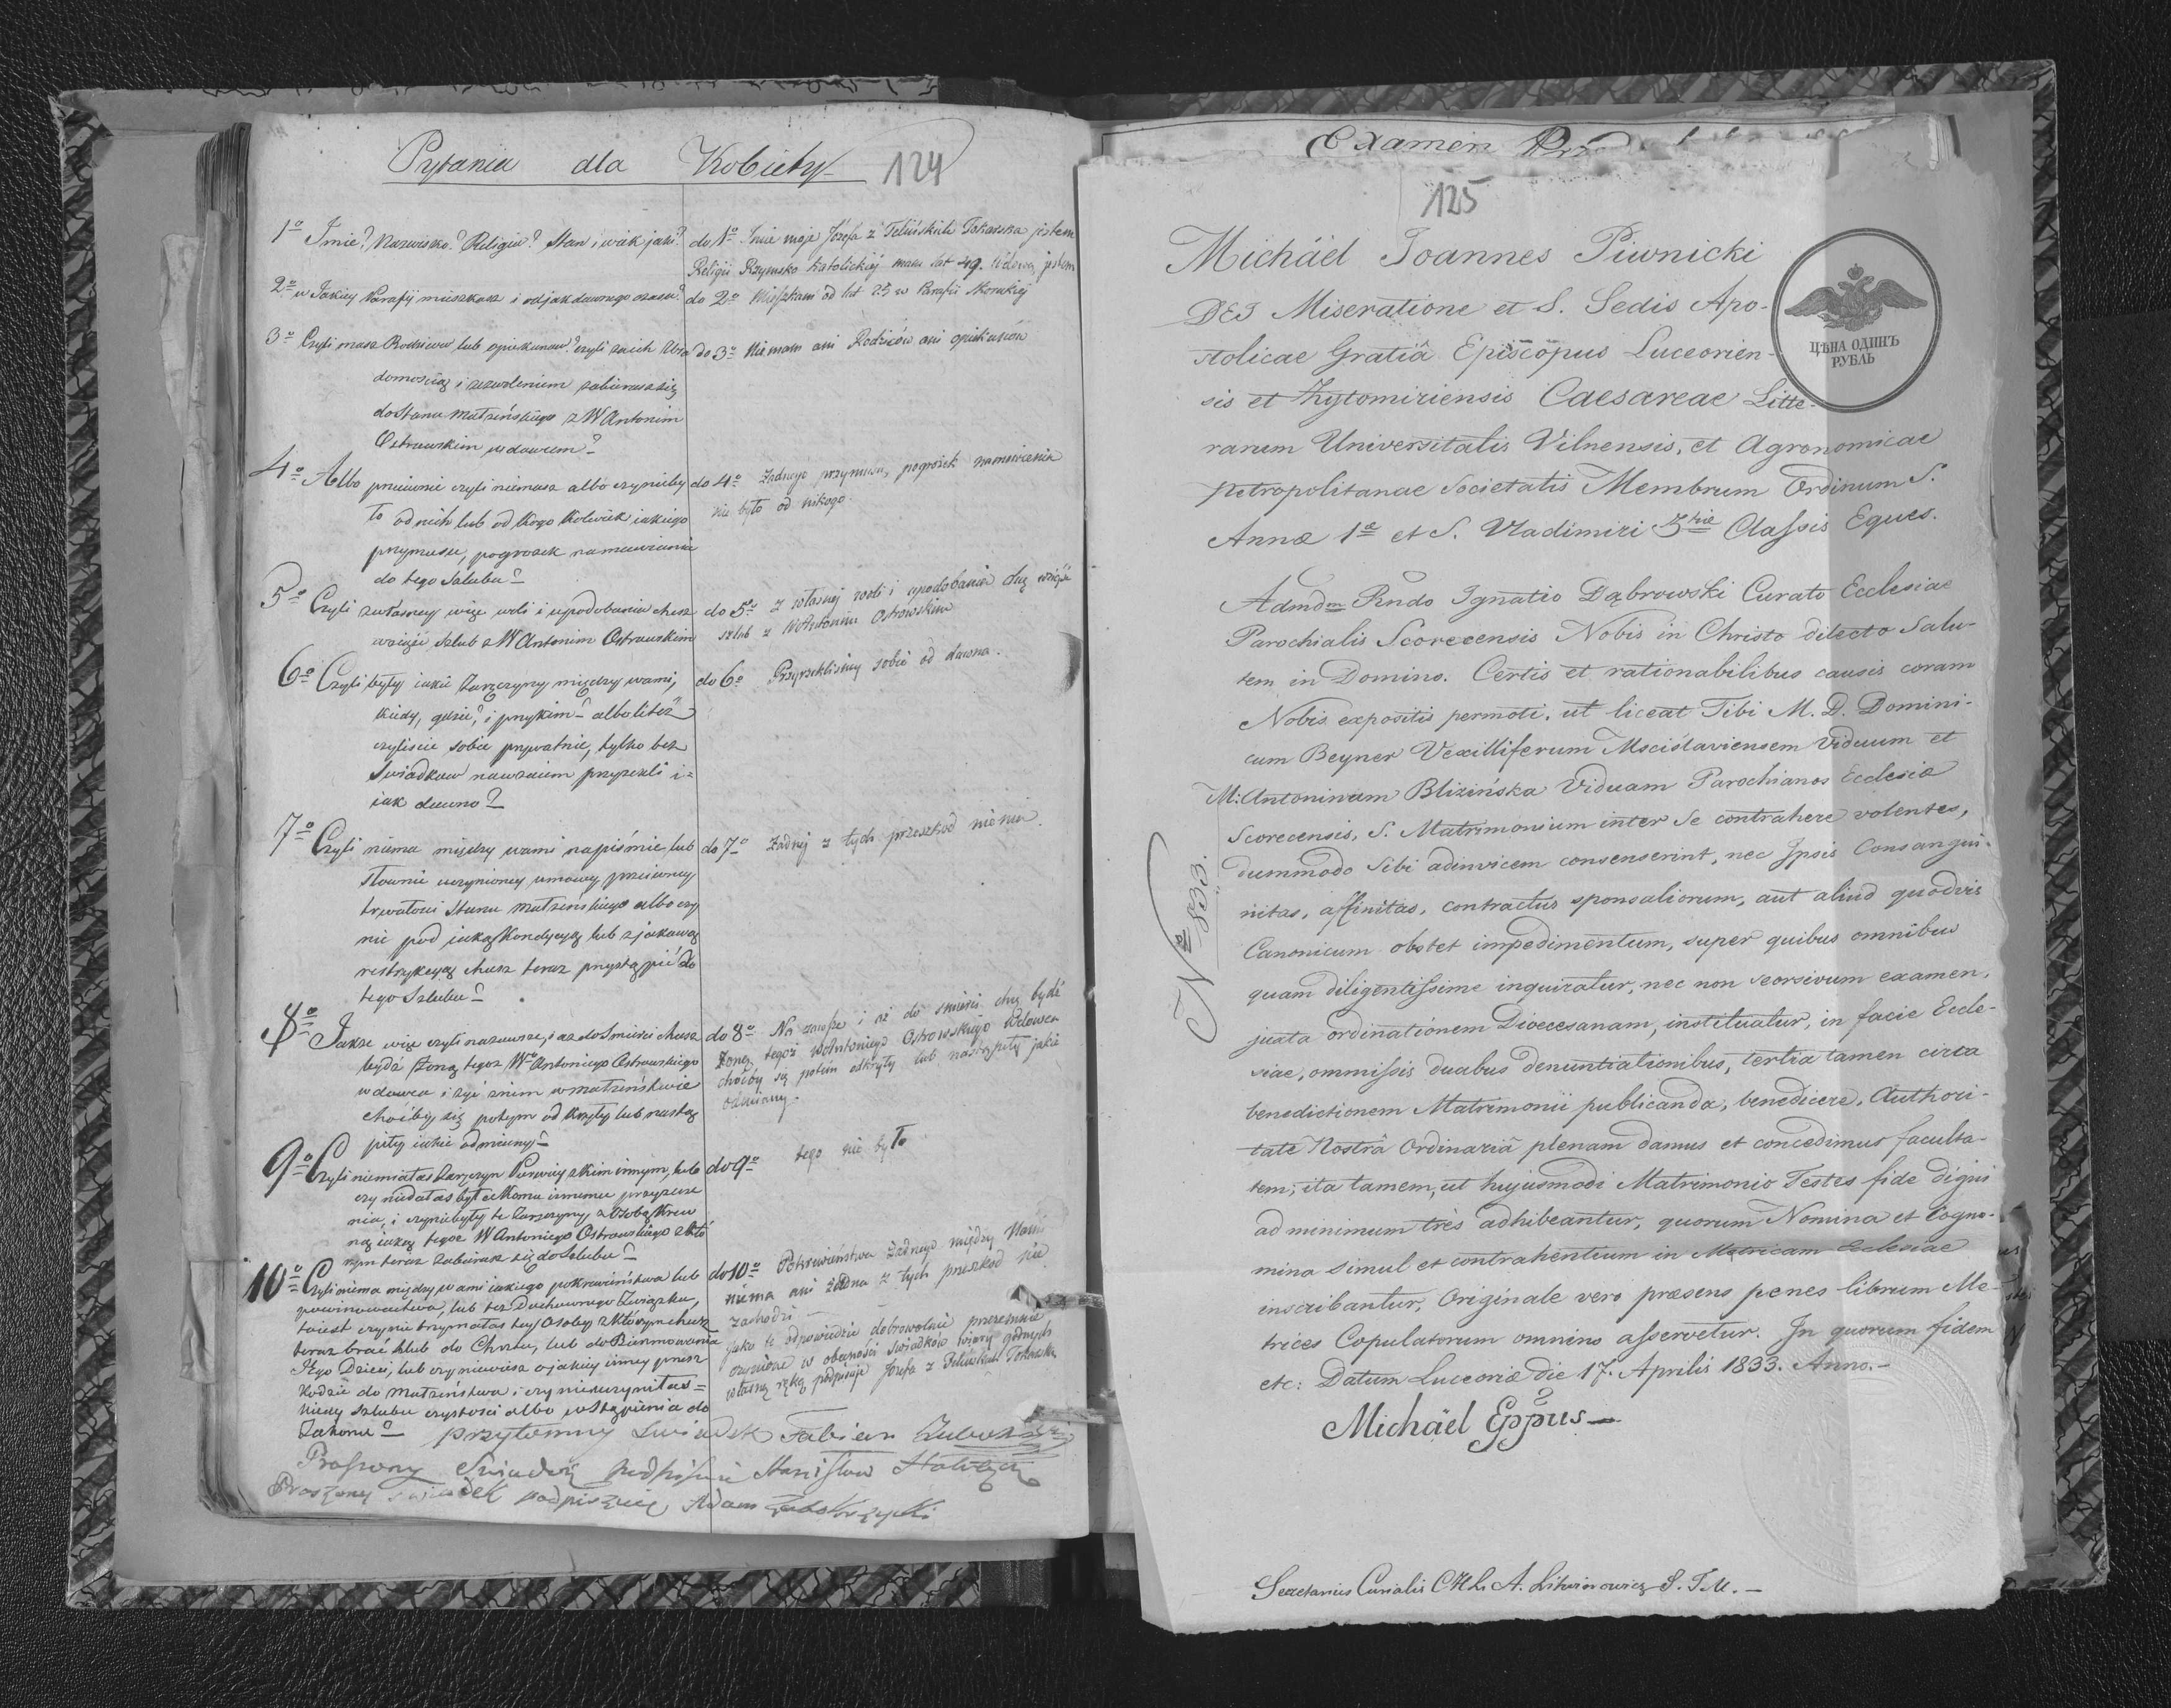 Pytania dla Kobiety
124
1º Imie? Nazwisko? Religiia? Stan i wiek jaki?
2º w Jakiey Parafij mieszkasz i od jak dawnego czasu?
3º Czyli masz Rodzicow lub opiekunow? czyli zaich Wia
domością i zezwoleniem zabierasz się
do Stanu Małzeńskiego z W Antonim
Ostrowskim wdowcem?
4º Albo przeciwnie czyli niemasz albo czynieby
to od nich lub od kogo kolwiek iakiego
przymusu, pogrozek namawiania
do tego Szlubu?
5º Czyli zwłasney więc woli i upodobania chcesz
wziąść szlub z W Antonim Ostrowskim
6º Czyli były iakie Zaręczyny między wami,
kiedy, gdzie, i przykim? albo liteż
czyliscie sobie prywatnie, tylko bez
Swiadkow nawzaiem przyrzekli i=
iak dawno?
7º Czyli niema między wami napiśmie lub
słownie uczynioney umowy przeciwney
trwałosci Stanu Małzeńskiego albo czy
nie pod iaką Kondycyą lub z jakową
restrykcyą chcesz teraz przystąpić do
tego Szlubu?
8º Jakze więc czyli nazawsze, i az do Smierci chcesz
bydź Zoną tegoz Wº Antoniego Ostrowskiego
wdowca i żyć znim w małzeństwie
choćby się potym odkryły lub nastą
piły iakie odmiany?
9º Czyli niemiałas Zaręczyn Pierwiey zkim innym, lub
czy niedałas byla komu innemu przyrzecze
nia, i czyniebyły te Zaręczyny z Osobą Krew
ną iaką tegoz W Antoniego Ostrowskiego zktó
rym teraz zabierasz się do Szlubu?
10º Czyli niema między wami iakiego pokrewieństwa lub
powinowactwa, lub tez Duchownego Związku,
toiest czynie trzymałas tey Osoby zktórym chcesz
teraz brać szlub do Chrztu, lub do Bierzmowania
Jego Dzieci, lub czy niewiesz o jakiey inney przesz
kodzie do małzeństwa i czy nieuczyniłas=
kiedy szlubu czystości albo wstąpienia do
Zakonu?
do 1º Imie moje Józefa z Felińskich Tokarska jestem
Religii Rzymsko Katolickiej mam lat 49. Wdową jestem
do 2º Mieszkam od lat 25 w Parafii Skorskiej
do 3º Nie mam ani Rodziców ani opiekunów
do 4º Żadnego przymusu, pogróżek namówienia
nie było od nikogo
do 5º z własnej woli i upodobania chcę wziąść
szlub z W Antonim Ostrowskim
do 6º Przyrzekliśmy sobie od dawna.
do 7º Żadnej z tych przeszkod nie ma.
do 8º Na zawsze i aż do śmierci chcę bydź
Żoną tegoż W Antoniego Ostrowskiego Wdowca
choćby się potem odkryły lub nastąpiły jakie
odmiany.
do 9º tego nie było
do 10º Pokrewieństwa Żadnego między Nami
niema ani żadna z tych przeszkod nie
zachodzi —
Jako te odpowiedzie dobrowolnie przezemnie
czynione w obecności Swiadków wiary godnych
własną ręką podpisuje Józefa z Felińskich Tokarska
przytomny Swiadek Fabian
Proszony Swiadek podpisuie Stanisław
Proszony Swiadek podpisuię Adam
Examen
125
ЦѢНА ОДИНЪ
РУБЛЬ
Michäel Joannes Piwnicki
DEI Miseratione et S. Sedis Apo-
stolicae Gratiâ Episcopus Luceorien-
sis et Zytomiriensis Caesareae Litte-
rarum Universitatis Vilnensis, et Agronomicae
Petropolitanae Societatis Membrum Ordinum S.
Annæ 1æ et S. Vladimiri 3tiæ Classis Eques.
Admdm Rndo Ignatio Dąbrowski Curato Ecclesiae
Parochialis Scorecensis Nobis in Christo dilecto Salu-
tem in Domino. Certis et rationabilibus causis coram
Nobis expositis permoti, ut liceat Tibi M. D. Domini-
cum Beyner Vexilliferum Mscislaviensem Viduum et
M: Antoninam Blizińska Viduam Parochianos Ecclesiæ
Scorecensis, S. Matrimonium inter se contrahere volentes,
dummodo sibi adinvicem consenserint, nec Ipsis Consangui-
nitas, affinitas, contractus sponsaliorum, aut aliud quodvis
Canonicum obstet impedimentum, super quibus omnibus
quam diligentissime inquiratur, nec non seorsivum examen,
juxta ordinationem Dioecesanam, instituatur, in facie Eccle-
siae, ommissis duabus denuntiationibus, tertia tamen circa
benedictionem Matrimonii publicanda, benedicere, Authori-
tate Nostrâ Ordinariâ plenam damus et concedimus faculta-
tem; ita tamen, ut hujusmodi Matrimonio Testes fide digni
ad minimum tres adhibeantur, quorum Nomina et Cogno-
mina simul et contrahentium in Metricam Ecclesiae
inscribantur, Originale vero præsens penes librum Me-
trices Copulatorum omnino asservetur. In quorum fidem
etc: Datum Luceoriæ die 17. Aprilis 1833. Anno.-
Michäel Eppus
Nº 833.
Secretarius Curialis C.H.L. A. Litwinowicz S.T.M.—